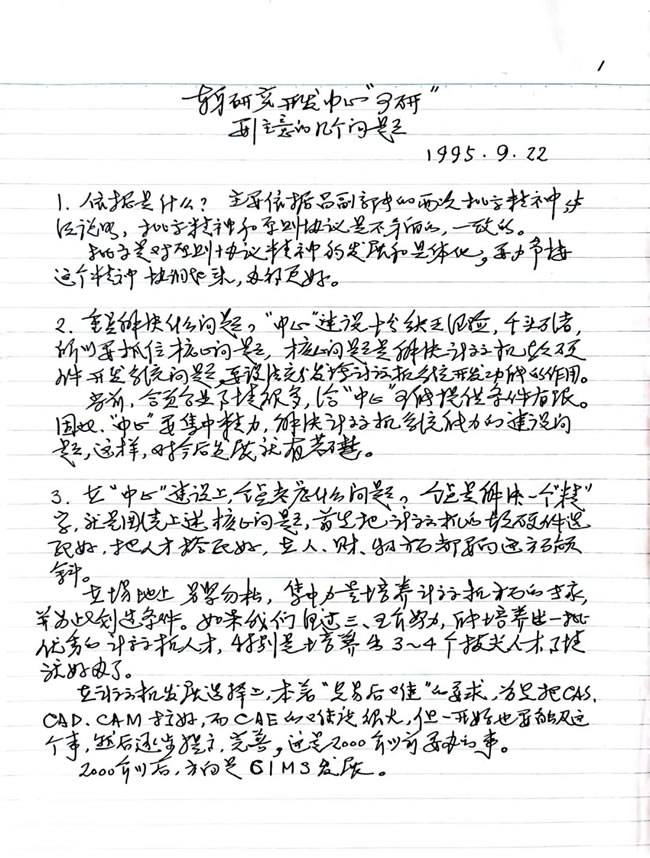 1
研究开发中心“可研”
要注意的几个问题
1995.9.22
1. 依据是什么？主要依据吕副部长的两次批示精神,
批示精神和原则协议是不矛盾的,一致的。
批示是对原则协议精神的发展和具体化,要力争按
这个精神协调起来,办得更好。
2. 重点解决什么问题？“中心”建设十分缺乏经验,千头万绪,
所以要抓住核心问题,核心问题是解决计算机软硬
件开发系统问题,要设法充分发挥计算机系统开发功能的作用。
当前,合资企业困难很多,给“中心”可能提供条件有限。
因此,“中心”要集中精力,解决计算机系统能力的建设问
题,这样,对今后发展就有基础。
3. 在“中心”建设上,重点考虑什么问题？重点是解决一个“精”
字,就是围绕上述核心问题,首先把计算机的软硬件选
配好,把人才搭配好,在人、财、物方面都要向这方面倾
斜。
在场地上,集中力量培养计算机方面的专家,
并为此创造条件。如果我们通过三、五年努力,能培养出一批
优秀的计算机人才,特别是培养出3~4个拔尖人才,
就好办了。
在计算机发展选择上,本着“先易后难”的要求,首先把CAS.
CAD.CAM搞好,而CAE的难度很大,但一开始也要触及这
个事,然后逐步提高,完善,这是2000年以前要办的事。
2000年以后,方向是CIMS发展。